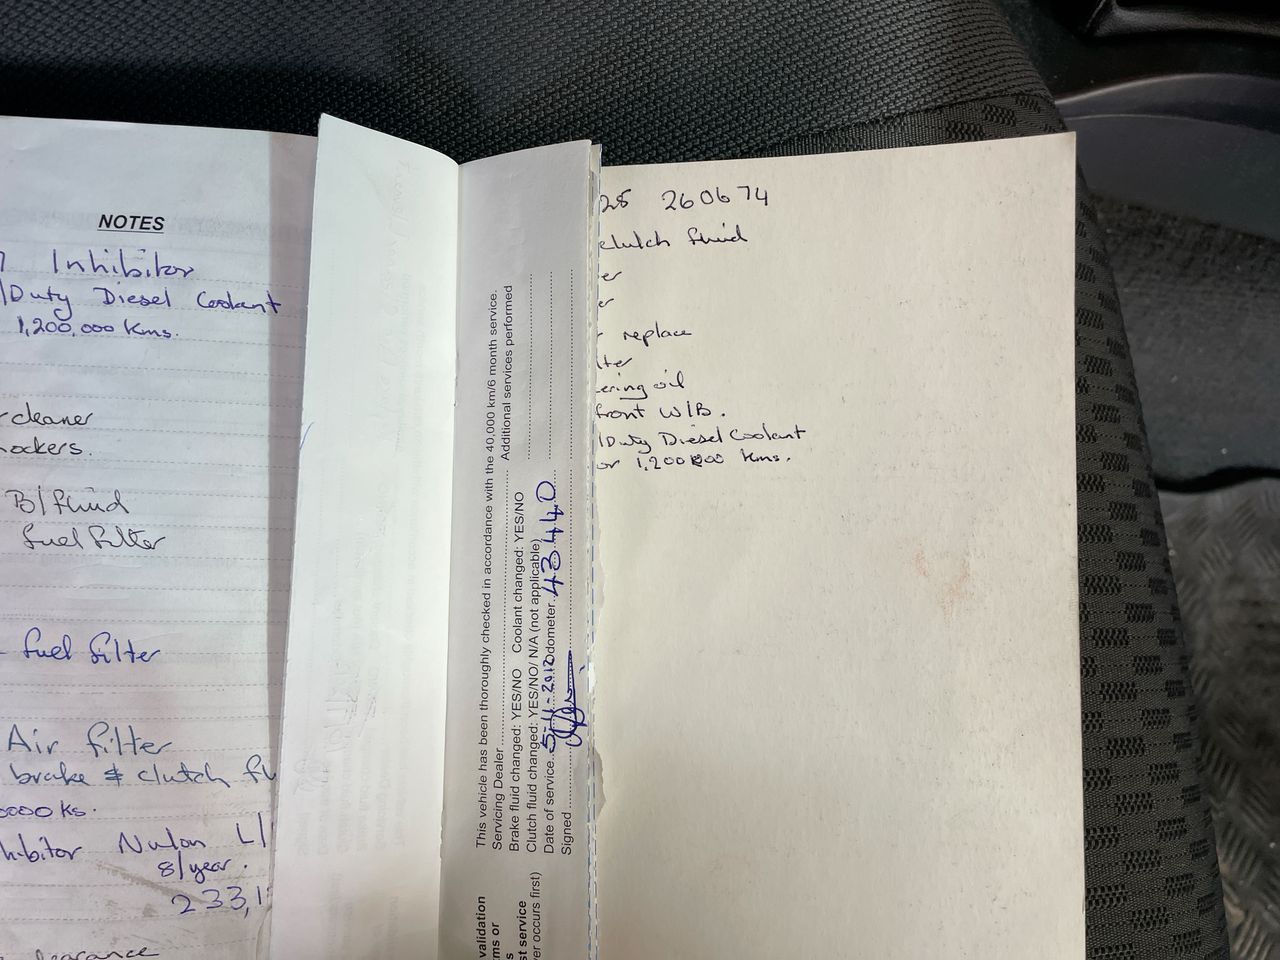 NOTES
Inhibitor
/Duty Diesel Coolant
1,200,000 Kms.
cleaner
B/fluid
fuel filter
fuel filter
Air filter
brake & clutch
0000 Ks.
hibitor Nulon L/
8/year.
233,1
learance
This vehicle has been thoroughly checked in accordance with the 40,000 km/6 month service.
Servicing Dealer Additional services performed
Brake fluid changed: YES/NO Coolant changed: YES/NO
Clutch fluid changed: YES/NO/ N/A (not applicable)
Date of service 5-11-2012 Odometer 43440
Signed
validation
ms or
s
st service
er occurs first)
25 260674
clutch fluid
er
er
r replace
lter
ering oil
front W/B.
/Duty Diesel Coolant
or 1,200000 Kms.